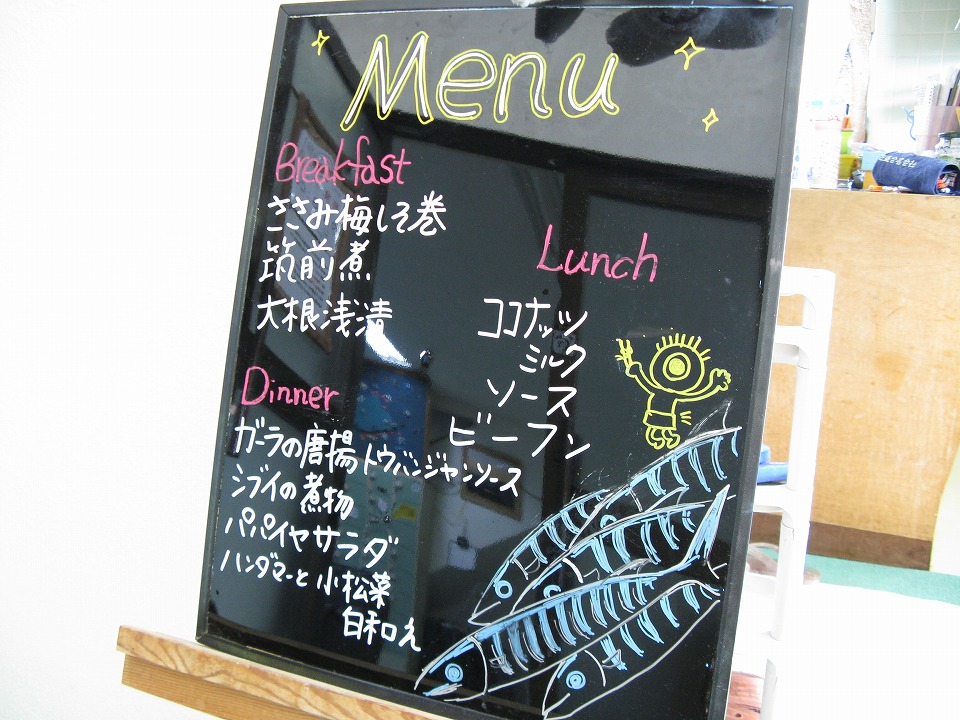 Menu
Breakfast
ささみ梅しそ巻
筑前煮
大根浅漬
Lunch
ココナッツ
ミルク
ソース
ビーフン
Dinner
ガーラの唐揚トウバンジャンソース
ジライの煮物
パパイヤサラダ
ハンダマーと小松菜
白和え